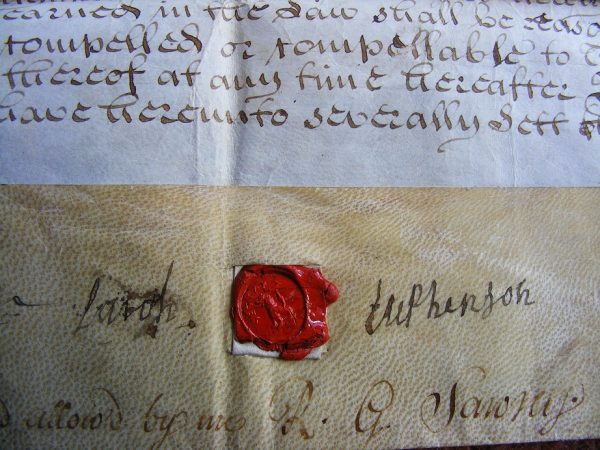 earned in the Law shall be reaso
compelled or compellable to
thereof at any time hereafter
have hereunto severally sett
Sarah
allow'd by me R. G. Sawrey